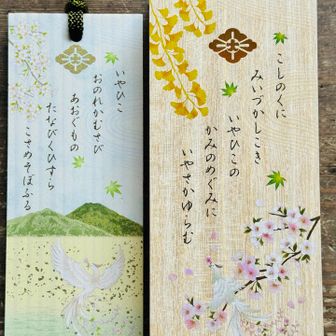 こしのくに
みいづかしこき
いやひこの
かみのめぐみに
いやさかゆらむ
いやひこ
おのれかむさび
あおぐもの
たなびくひすら
こさめそぼふる